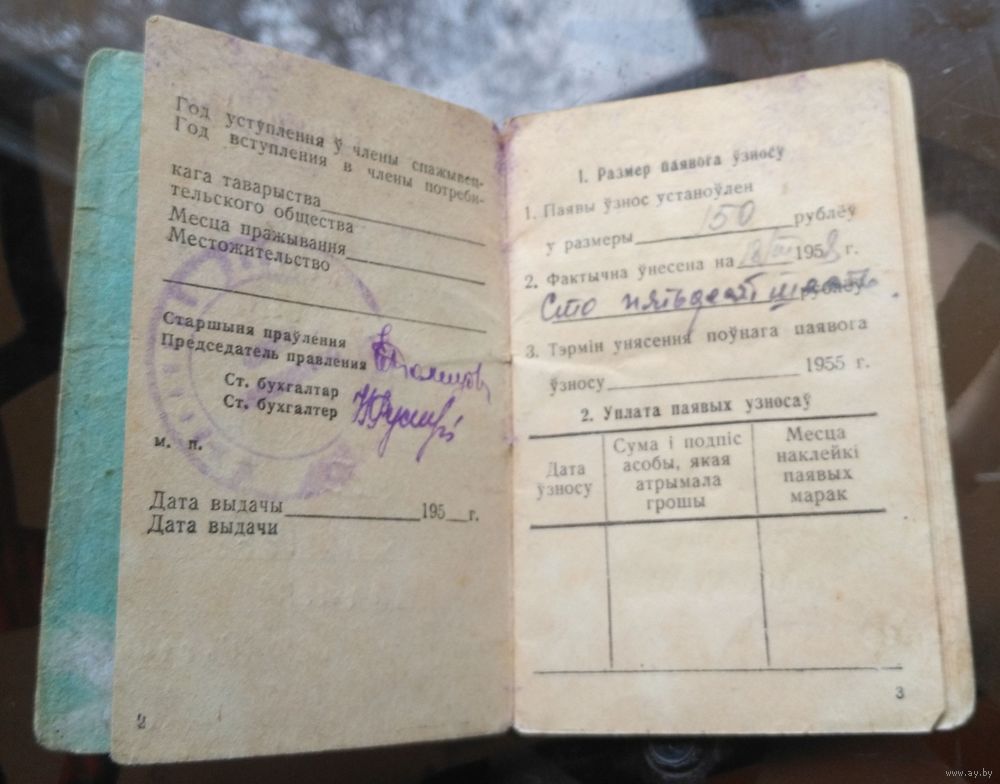 Год уступлення ў члены спажывец-
Год вступления в члены потреби-
кага таварыства
тельского общества
Месца пражывання
Местожительство
Старшыня праўлення
Председатель правления
Ст. бухгалтар
Ст. бухгалтер
м. п.
Дата выдачы 195 г.
Дата выдачи
2
1. Размер паявога ўзносу
1. Паявы ўзнос устаноўлен
у размеры 150 рублёў
2. Фактычна ўнесена на 1958 г.
Сто пятьдесят рублёў
3. Тэрмін унясення поўнага паявога
ўзносу 1955 г.
2. Уплата паявых узносаў
Дата ўзносу
Сума і подпіс асобы, якая атрымала грошы
Месца наклейкі паявых марак
3
www.ay.by